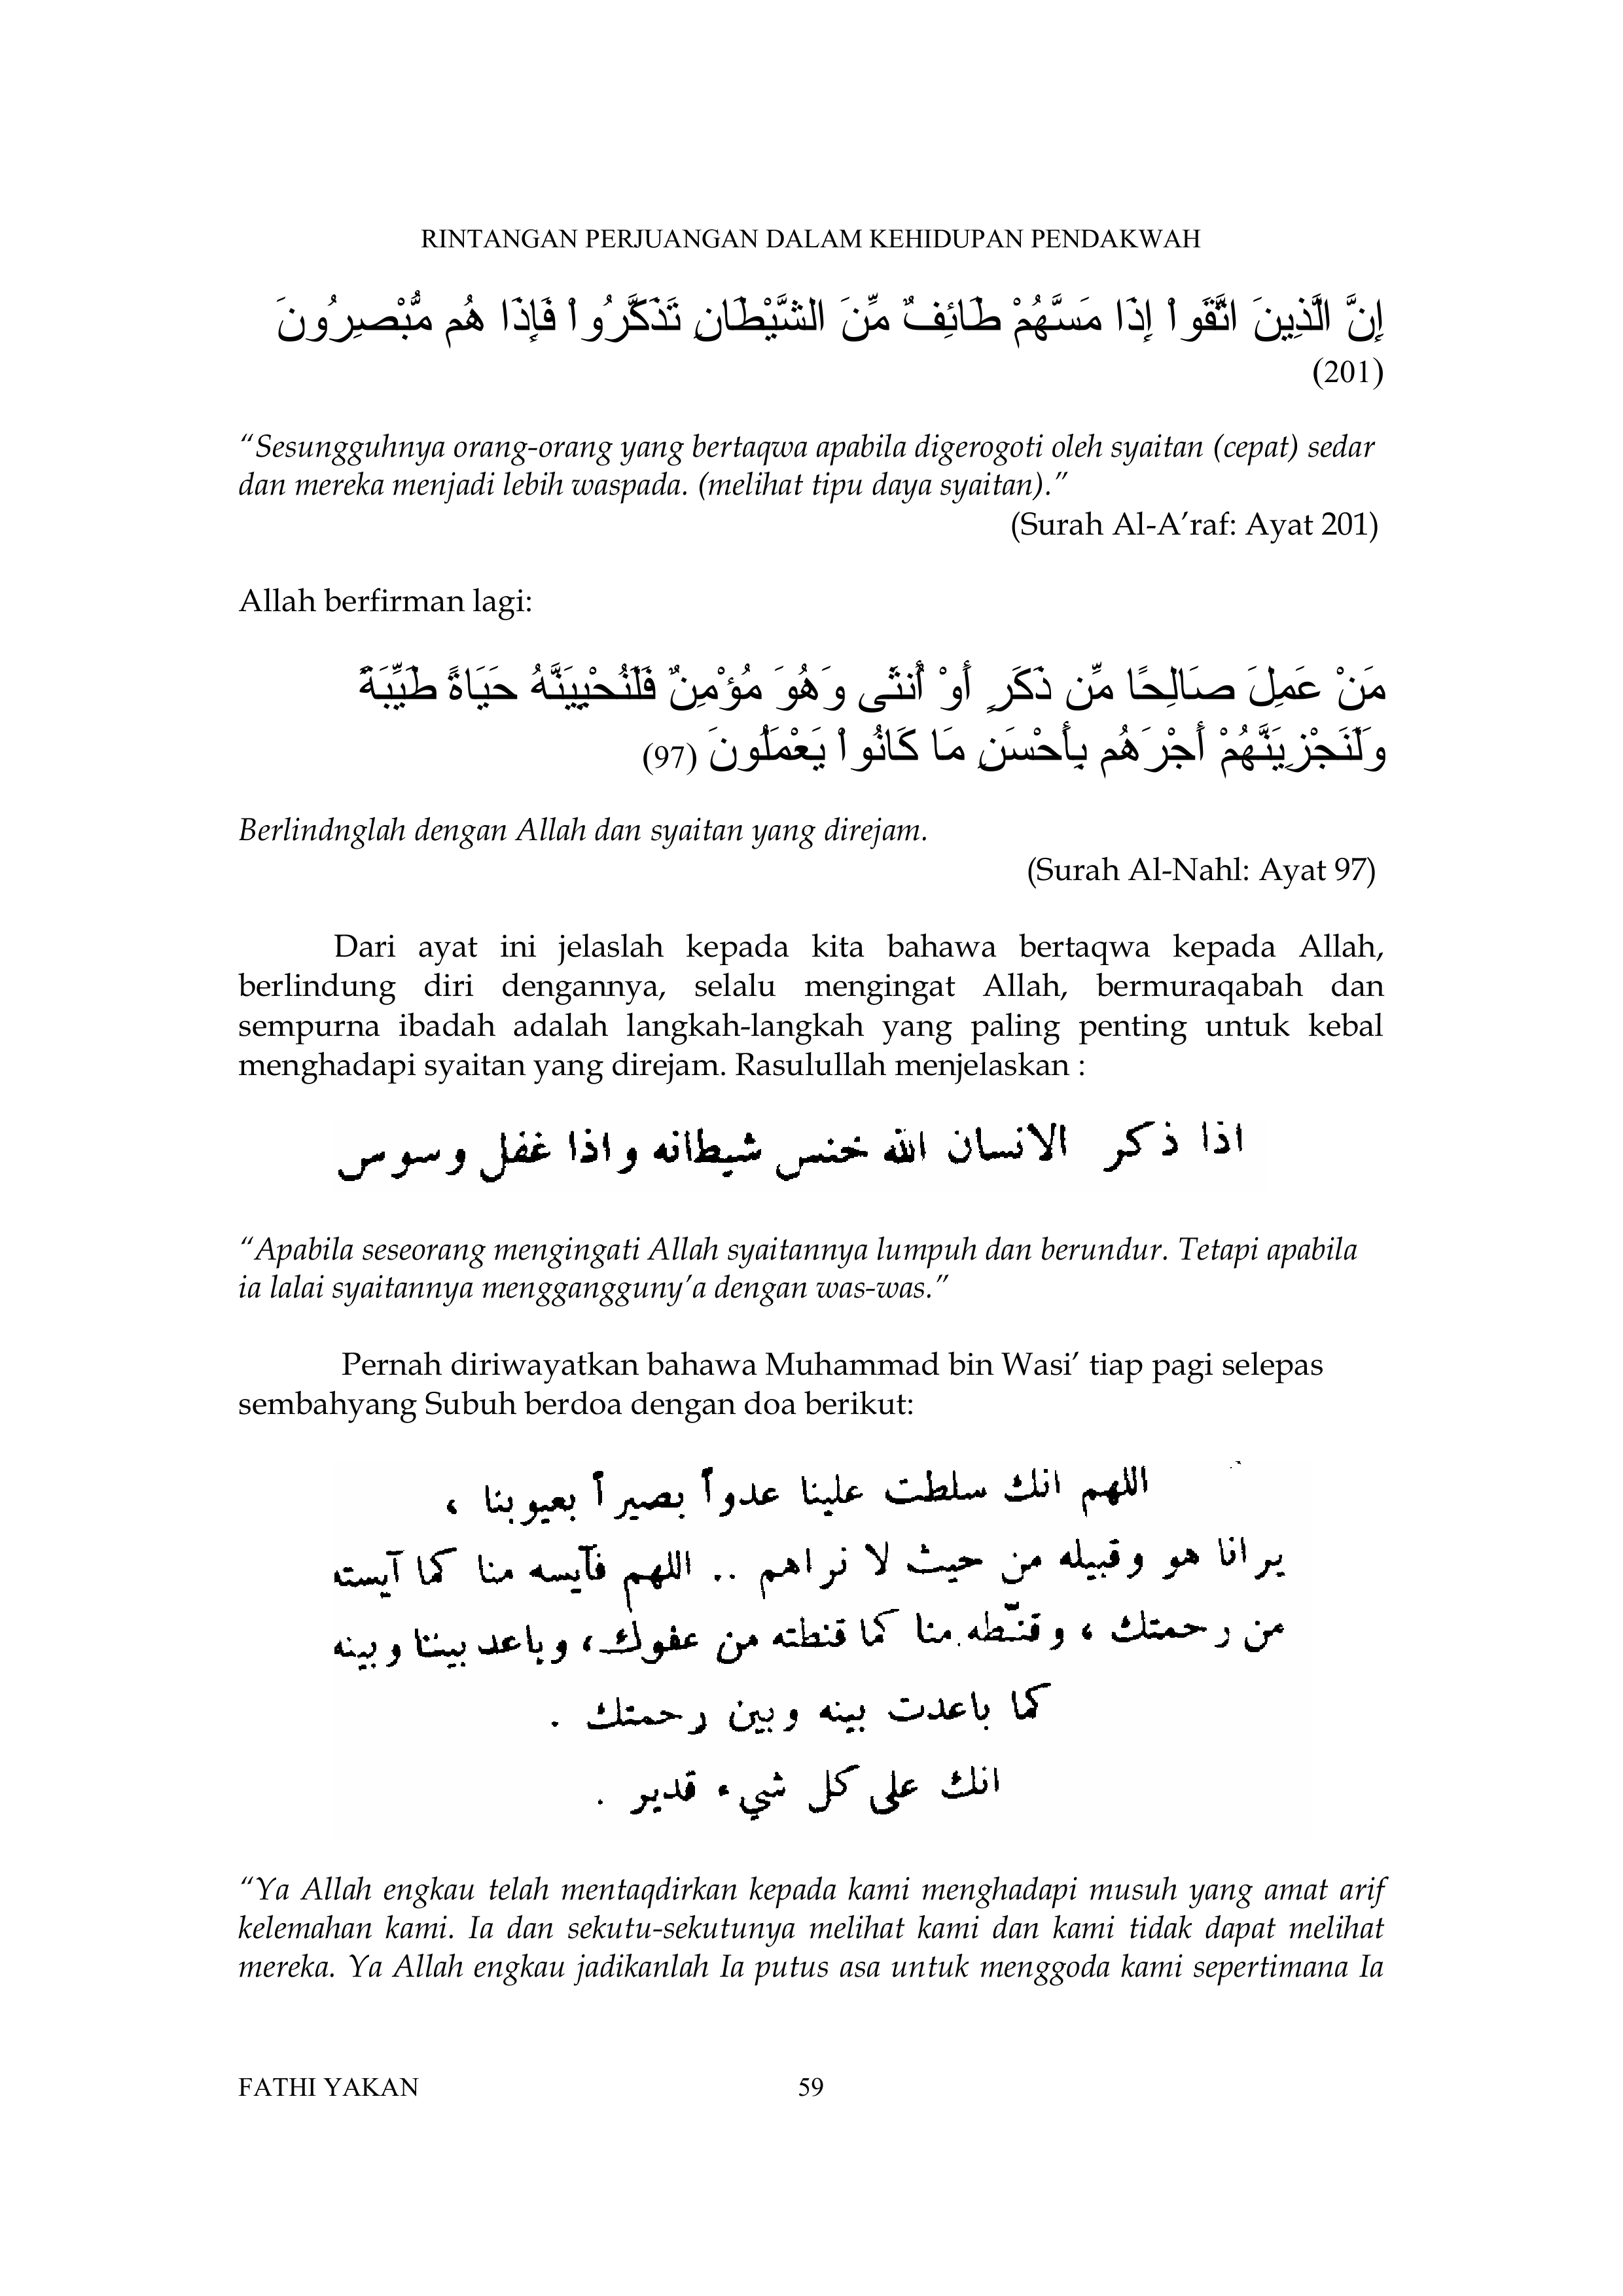 RINTANGAN PERJUANGAN DALAM KEHIDUPAN PENDAKWAH
إِنَّ الَّذِينَ اتَّقَواْ إِذَا مَسَّهُمْ طَائِفٌ مِّنَ الشَّيْطَانِ تَذَكَّرُواْ فَإِذَا هُم مُّبْصِرُونَ
(201)
“Sesungguhnya orang-orang yang bertaqwa apabila digerogoti oleh syaitan (cepat) sedar
dan mereka menjadi lebih waspada. (melihat tipu daya syaitan).”
(Surah Al-A’raf: Ayat 201)
Allah berfirman lagi:
مَنْ عَمِلَ صَالِحًا مِّن ذَكَرٍ أَوْ أُنثَى وَهُوَ مُؤْمِنٌ فَلَنُحْيِيَنَّهُ حَيَاةً طَيِّبَةً
وَلَنَجْزِيَنَّهُمْ أَجْرَهُم بِأَحْسَنِ مَا كَانُواْ يَعْمَلُونَ (97)
Berlindnglah dengan Allah dan syaitan yang direjam.
(Surah Al-Nahl: Ayat 97)
Dari ayat ini jelaslah kepada kita bahawa bertaqwa kepada Allah,
berlindung diri dengannya, selalu mengingat Allah, bermuraqabah dan
sempurna ibadah adalah langkah-langkah yang paling penting untuk kebal
menghadapi syaitan yang direjam. Rasulullah menjelaskan :
اذا ذكر الانسان الله خنس شيطانه واذا غفل وسوس
“Apabila seseorang mengingati Allah syaitannya lumpuh dan berundur. Tetapi apabila
ia lalai syaitannya menggangguny’a dengan was-was.”
Pernah diriwayatkan bahawa Muhammad bin Wasi’ tiap pagi selepas
sembahyang Subuh berdoa dengan doa berikut:
اللهم انك سلطت علينا عدواً بصيراً بعيوبنا ،
يرانا هو وقبيله من حيث لا نراهم .. اللهم فآيسه منا كما آيسته
من رحمتك ، وقنّطه منا كما قنطته من عفوك، وباعد بيننا وبينه
كما باعدت بينه وبين رحمتك .
انك على كل شيء قدير .
“Ya Allah engkau telah mentaqdirkan kepada kami menghadapi musuh yang amat arif
kelemahan kami. Ia dan sekutu-sekutunya melihat kami dan kami tidak dapat melihat
mereka. Ya Allah engkau jadikanlah Ia putus asa untuk menggoda kami sepertimana Ia
FATHI YAKAN 59